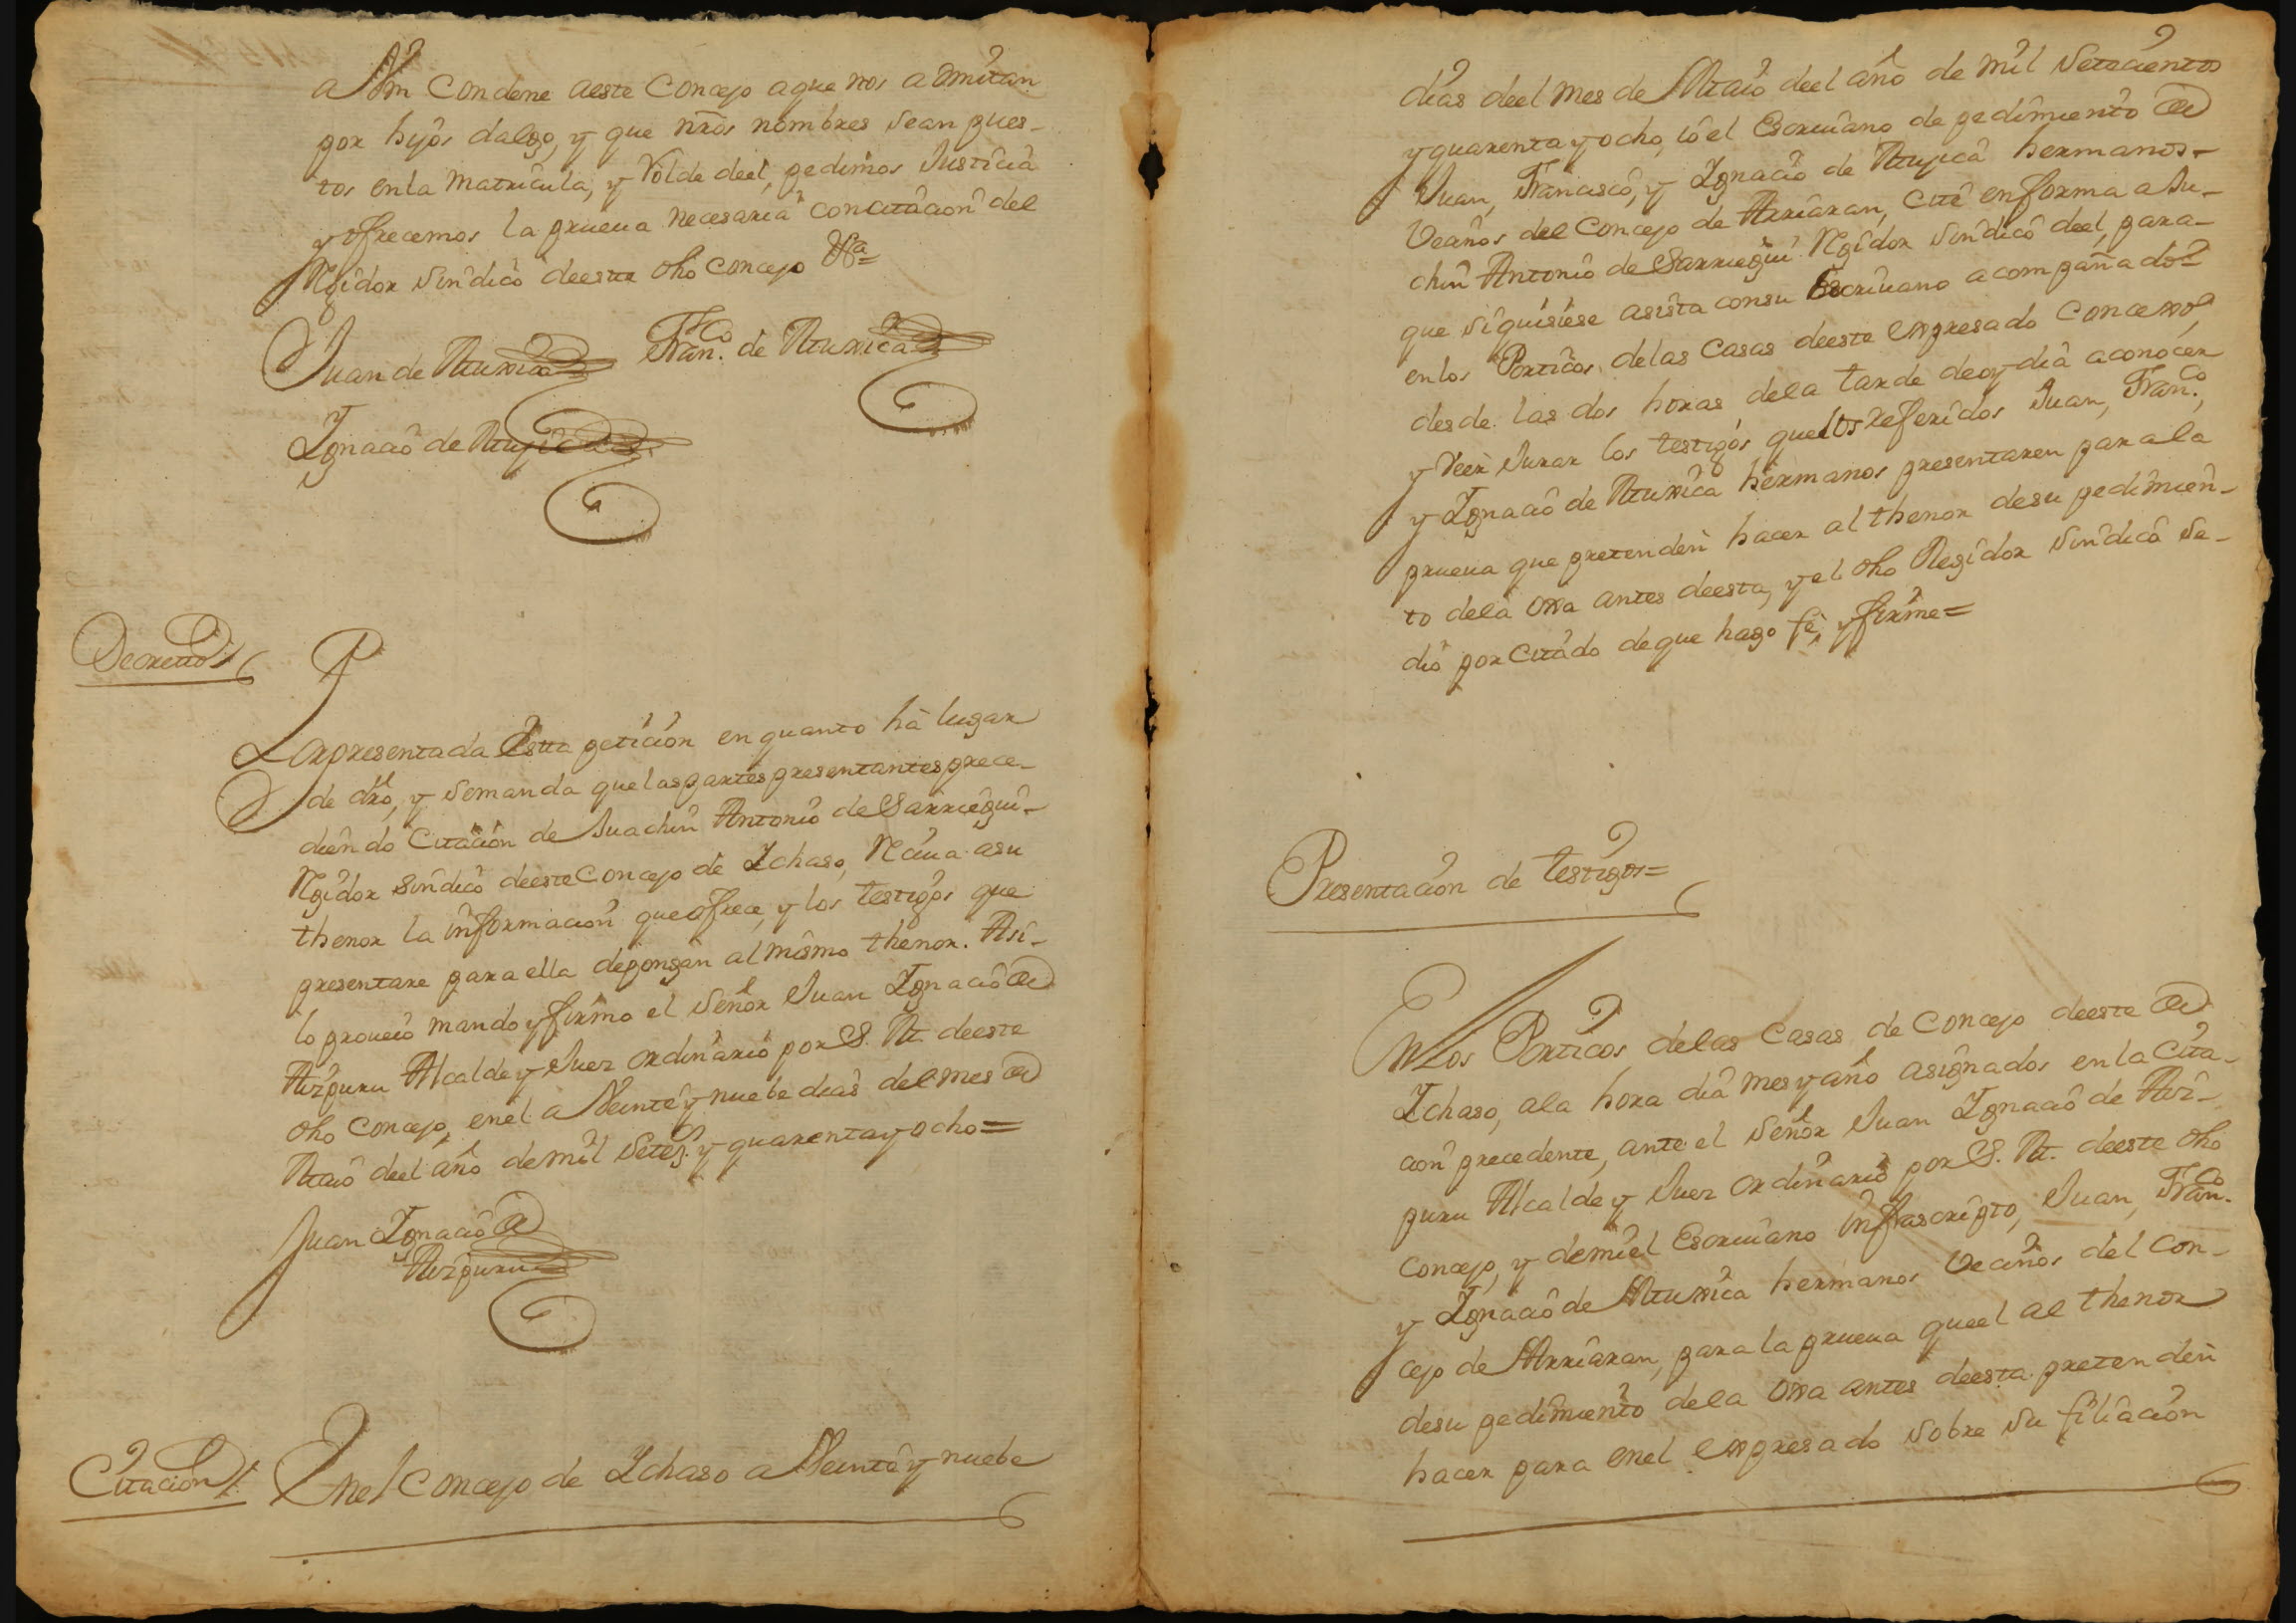 a Vm condene aeste Concejo aque nos admitan
por hijos dalgo, y que nrõs nombres sean pues-
tos enla matricula, y Rolde deel, pedimos Justicia
y ofrecemos la prueua necesaria con citacion del
Rgidor sindico deeste dho concejo &a=
Juan de Muxica Franco. de Muxica
Ygnacio de Mujica
Decreto
Por presentada Esta peticion en quanto há lugar
de dro, y semanda que las partes presentantes prece-
diendo Citacion de Juachin Antonio de Sarriegui-
Rgidor sindico deeste Concejo de Ichaso, Rciua asu
thenor la informacion que ofrece, y los testigos que
presentare para ella depongan al mismo thenor. Asi-
lo proueio mando y firmo el señor Juan Ygnacio de
Aizpuru Alcalde y Juez ordinario por S. M. deeste
dho Concejo, enel a Veinte y nuebe dias del mes de
Maio deel año de mil setezs. y quarenta y ocho=
Juan Ygnacio de
Aizpuru
Citacion
Enel Concejo de Ichaso a Veinte y nuebe
dias deel mes de Maio deel año de mil setecientos
y quarenta y ocho, io el Escriuano de pedimiento de
Juan, Francisco, y Ygnacio de Mujica hermanos-
Vecinos del Concejo de Arriaran, Cite enforma a Jua-
chin Antonio de Sarriegui Rgidor sindico deel, para-
que siquisiese asista consu Escriuano acompañado
en los Porticos delas Casas deeste expresado Concejo
desde las dos horas dela tarde deoy dia a conocer
y Veer Jurar los testigos quelos referidos Juan, Franco.,
y Ygnacio de Muxica hermanos presentaren para la
prueua que pretenden hacer al thenor desu pedimien-
to dela oxa antes deesta, y el dho Regidor sindico se-
dio por Citado de que hago fe, y firme=
Presentacion de testigos=
En los Porticos delas Casas de Concejo deeste de
Ichaso, ala hora dia mes y año asignados en la Cita-
cion precedente, ante el señor Juan Ygnacio de Aiz-
puru Alcalde y Juez ordinario por S. M. deeste dho
Concejo, y demiel Escriuano infrascripto, Juan, Franco.
y Ygnacio de Muxica hermanos Vecinos del Con-
cejo de Arriaran, para la prueua queel al thenor
desu pedimiento dela oxa antes deesta pretenden
hacer para enel expresado sobre su filiacion